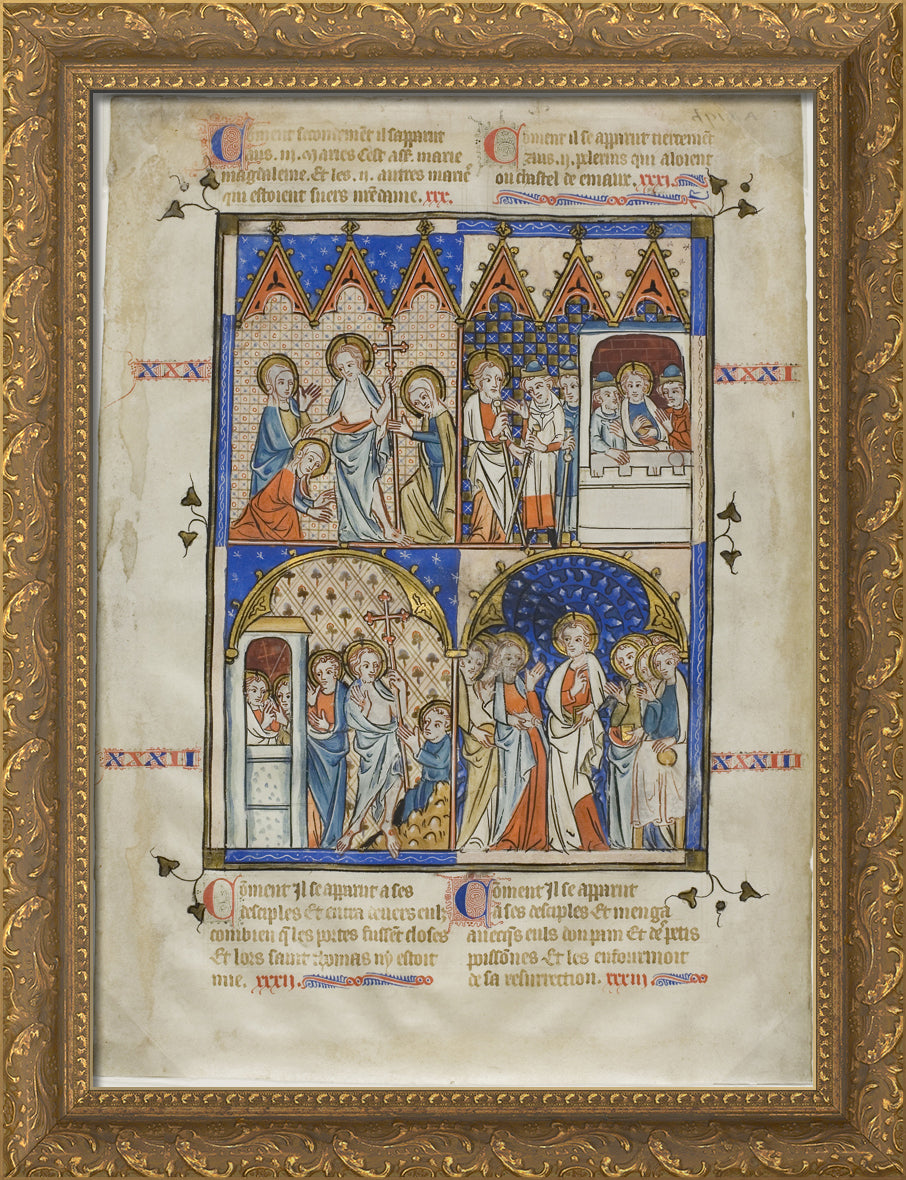 Coment secondemēt il sapparut
aus .iii. Maries Cest ass. marie
magdaleine. Et les .ii. autres mariē
qui estoient suers nr̄e dame. xxx.
Coment il se apparut tiercemēt
aus .ii. pelerins qui aloient
ou chastel de emaux. xxxi.
XXX
XXXI
XXXII
XXXIII
Cōment Il se apparut a ses
desciples Et entra devers euls
combien q̄ les portes fussēt closes
Et lors saint thomas ny estoit
mie. xxxii.
Cōment Il se apparut
a ses desciples Et menga
avecq̄s euls dou pain Et de petis
poissōnes Et les enfourmoit
de sa resurrection. xxxiii